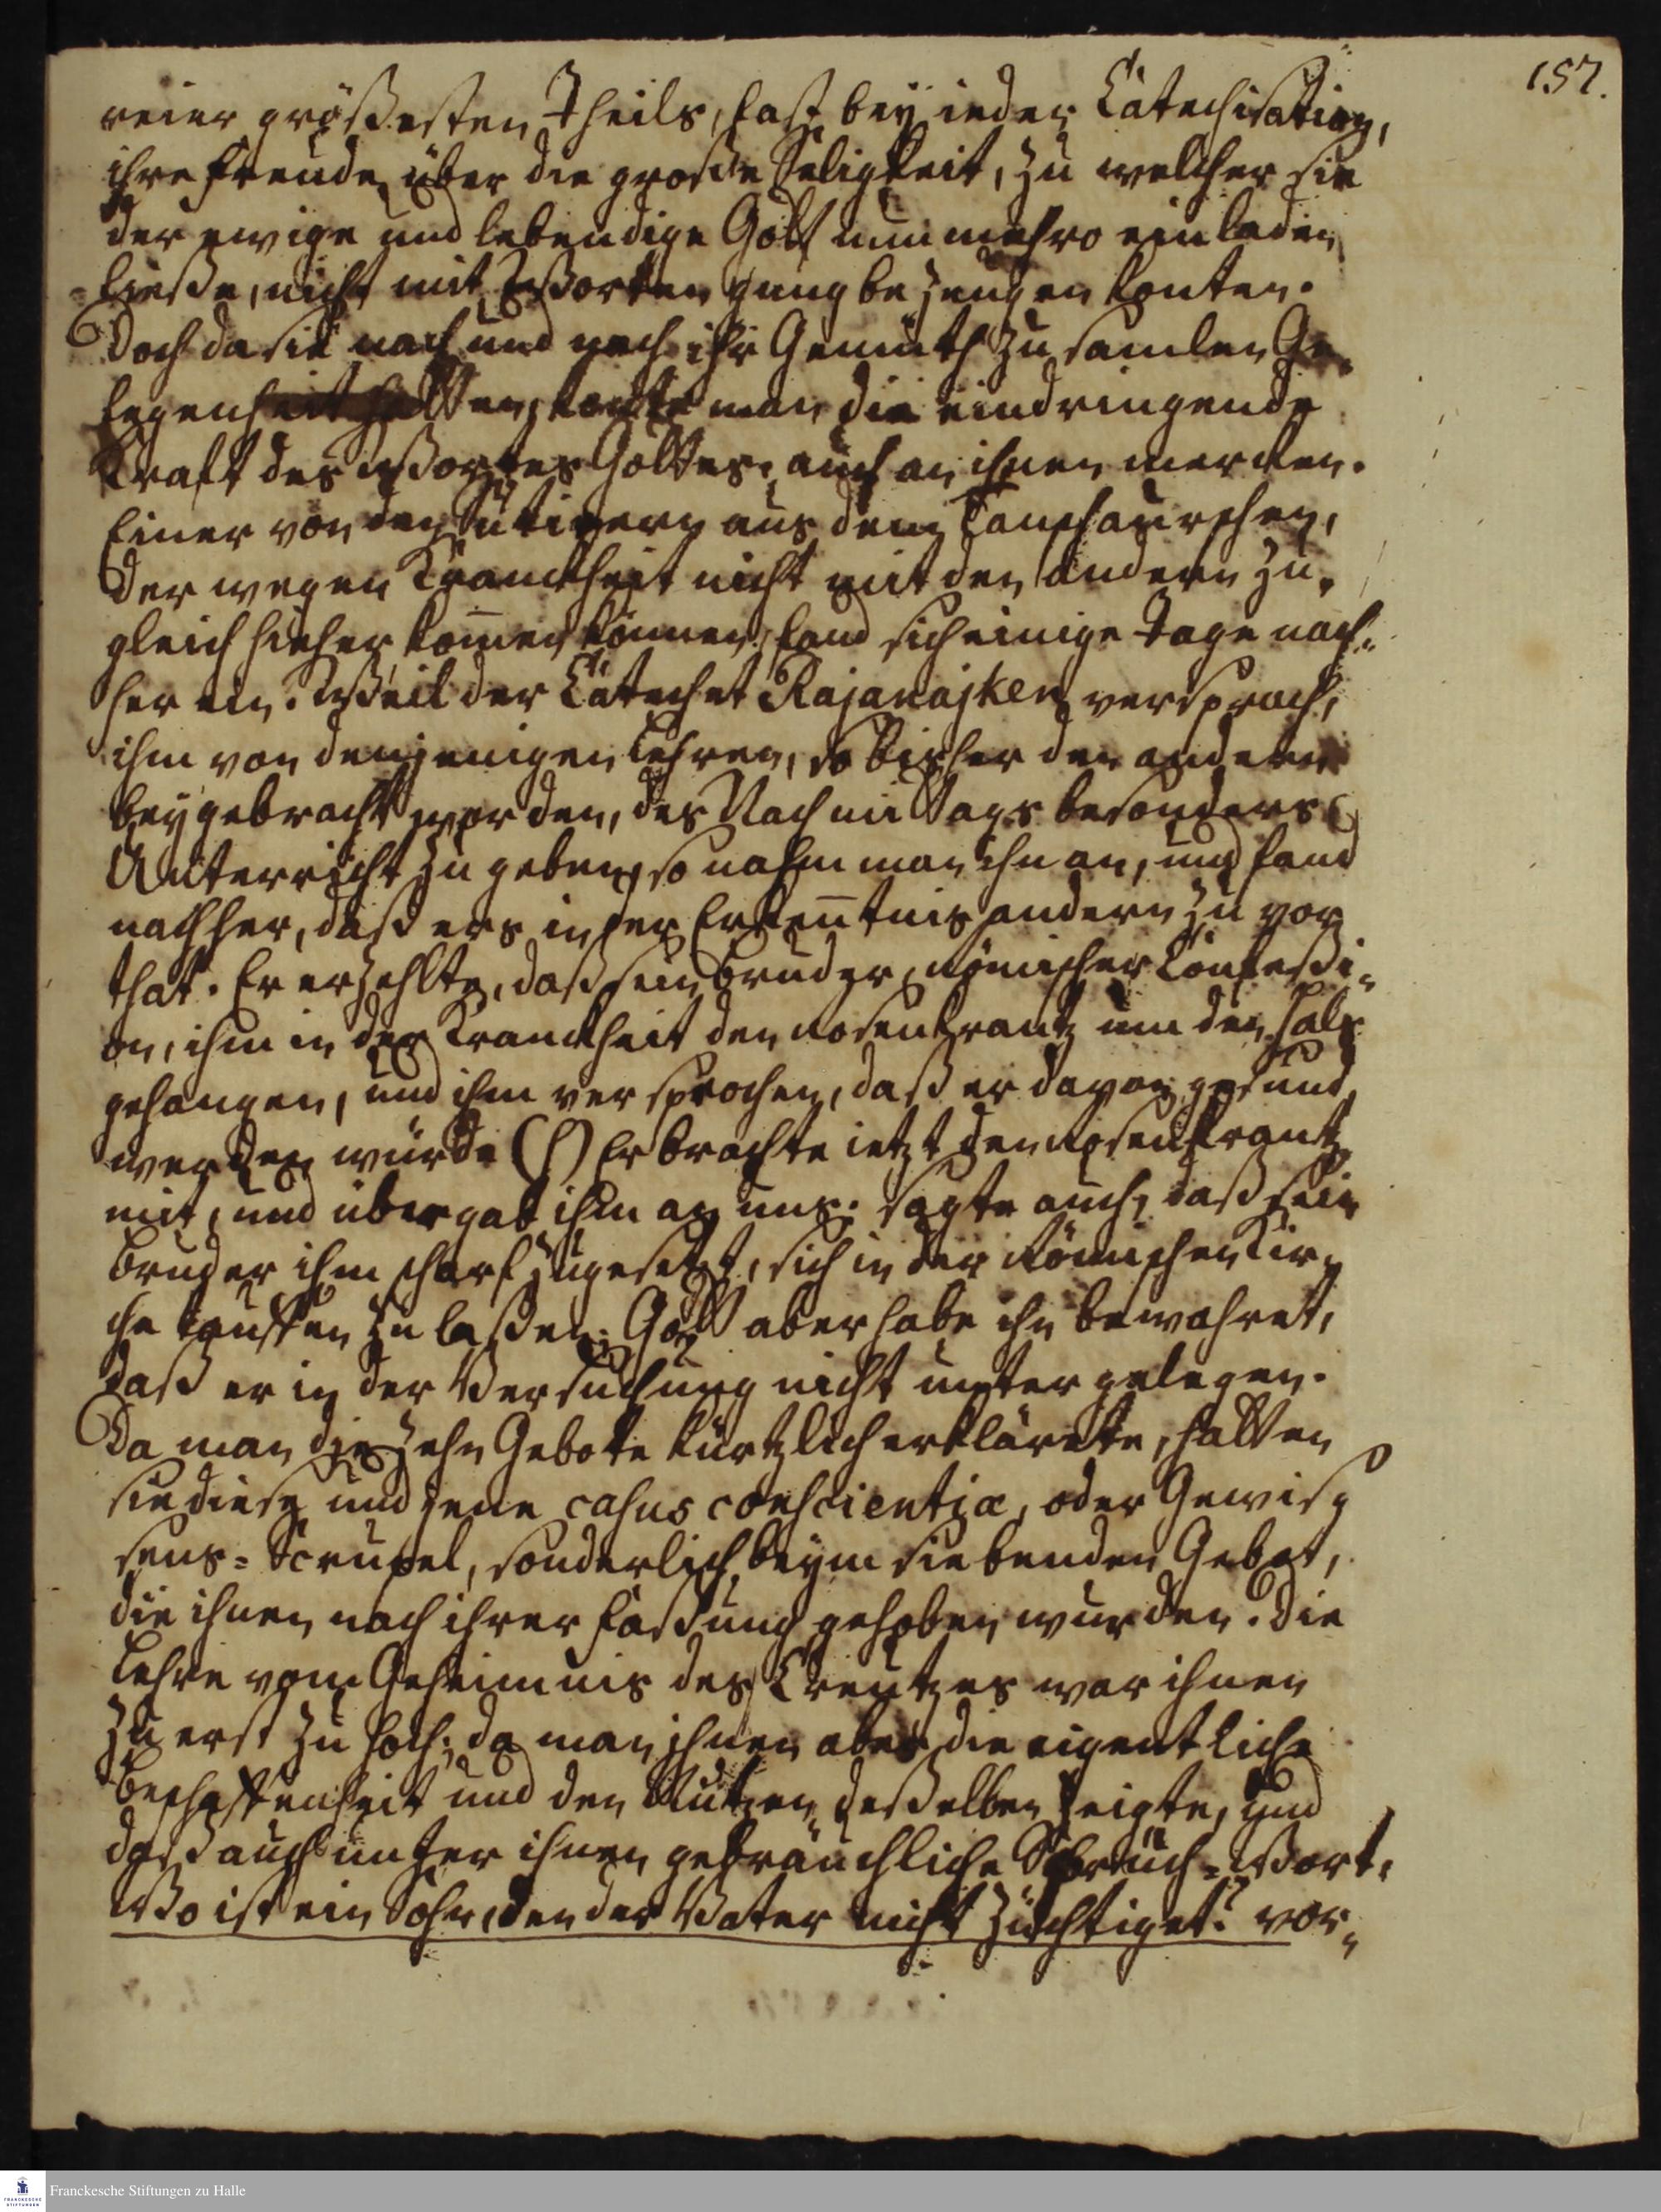 157.
reier größesten Theils, fast bey ieder Catechisation,
ihre Freude über die große Seligkeit, zu welcher sie
der ewige und lebendige Gott nunmehro einladen
ließe, nicht mit Worten gnug bezeugen konten.
Doch da sie nach und nach ihr Gemüth zu samlen Ge-
legenheit hatten, konte man die eindringende
Kraft des Wortes Gottes, auch an ihnen mercken.
Einer von den aus dem Tanschaurschen,
der wegen Kranckheit nicht mit den andern zu-
gleich hieher kom̄en können, fand sich einige Tage nach-
her ein. Weil der Catechet Rajanajken versprach,
ihm von denjenigen Lehren, so bisher den andern
beygebracht worden, des Nachmittags besonders
Unterricht zu geben, so nahm man ihn an, und fand
nachher, daß ers in der Erken̄tnis andern zu vor
that. Er erzehlte, daß sein Bruder, römischer Confeßi-
on, ihm in der Kranckheit den Rosenkrantz um den Hals
gehangen, und ihm versprochen, daß er davon gesund
werden würde (!) Er brachte ietzt den Rosenkrantz
mit, und übergab ihm an uns: sagte auch, daß sein
Bruder ihm scharf zugesetzt, sich in der Römischen Kir-
che tauffen zu laßen: Gott aber habe ihn bewahret,
daß er in der Versuchung nicht unter gelegen.
Da man die Zehn Gebote kürtzlich erklärete, hatten
sie diese und jene casus conscientiæ, oder Gewiß-
sens-Scrupel, sonderlich beym siebenden Gebot,
die ihnen nach ihrer Faßung gehoben wurden. Die
Lehre vom Geheimnis des Creutzes war ihnen
zu erst zu hoch: da man ihnen aber die eigentliche
Beschaffenheit und den Nutzen deßelben zeigte, und
daß auch unter ihnen gebräuchliche Sprüch-Wort:
Wo ist ein Sohn, den der Vater nicht züchtiget? vor-
Franckesche Stiftungen zu Halle